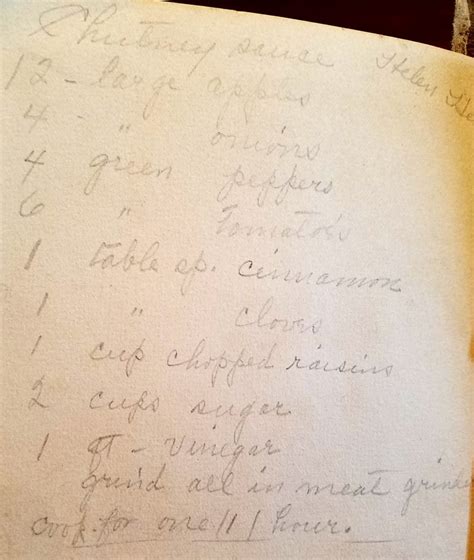 Chutney sauce Helen
12 - large apples
4 - " onions
4 green peppers
6 " tomatoes
1 table sp. cinnamon
1 " cloves
1 cup chopped raisins
2 cups sugar
1 qt - vinegar
grind all in meat
cook for one /1/ hour.